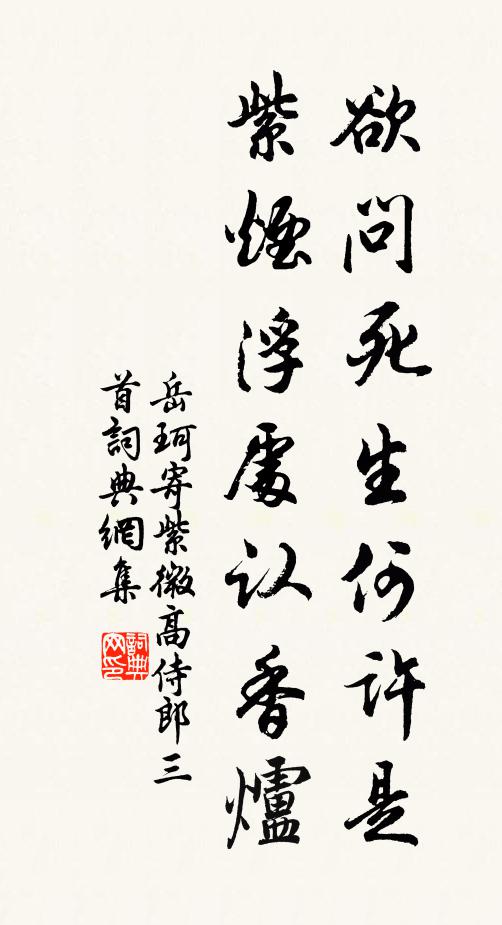 欲問死生何許是
紫煙浮處认香爐
岳珂寄紫微高侍郎三
首詞典網集
詞典
网印